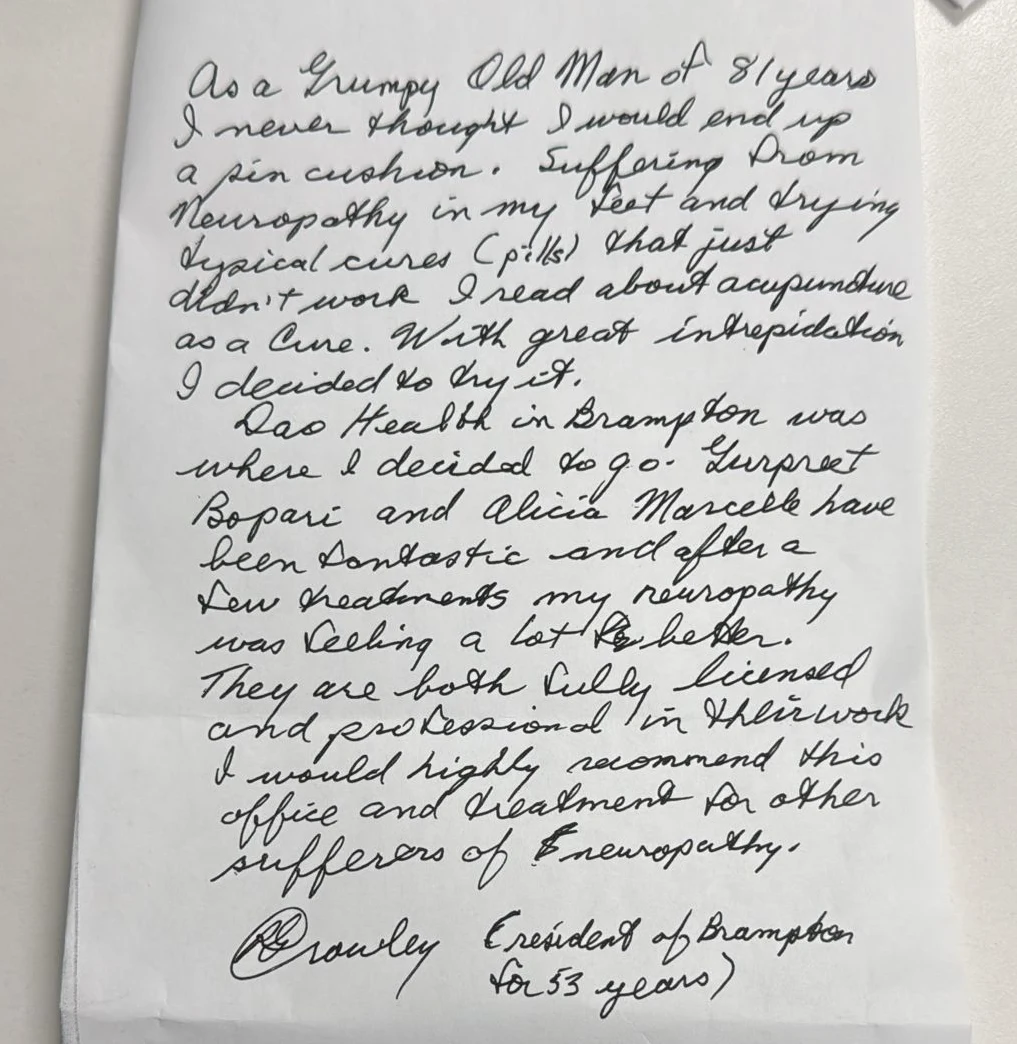 As a Grumpy Old Man of 81 years
I never thought I would end up
a pin cushion. Suffering from
Neuropathy in my feet and trying
typical cures (pills) that just
didn't work I read about acupuncture
as a Cure. With great intrepidation
I decided to try it.
Dao Health in Brampton was
where I decided to go. Gurpreet
Bopari and Alicia Marcelle have
been fantastic and after a
few treatments my neuropathy
was feeling a lot better.
They are both fully licensed
and professional in their work
I would highly recommend this
office and treatment for other
sufferers of neuropathy.
Crowley (resident of Brampton
for 53 years)